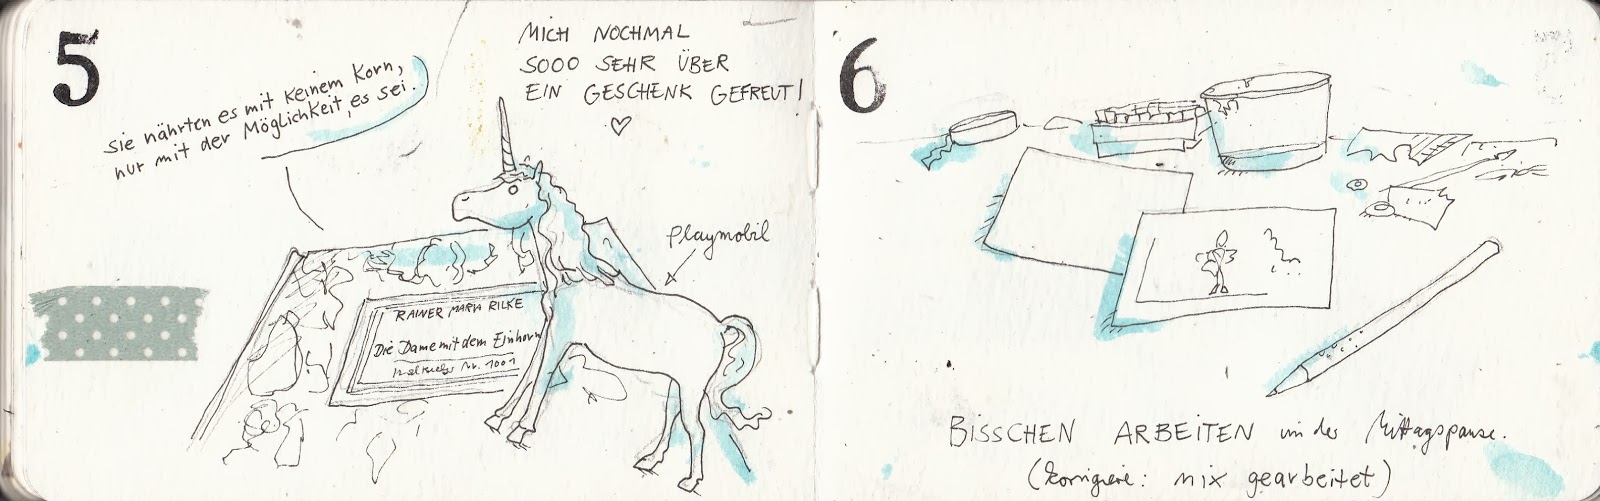 5
sie nährten es mit keinem Korn,
nur mit der Möglichkeit, es sei.
MICH NOCHMAL
SOOO SEHR ÜBER
EIN GESCHENK GEFREUT!
playmobil
RAINER MARIA RILKE
Die Dame mit dem Einhorn
Nr. 1001
6
BISSCHEN ARBEITEN in der Mittagspause.
(korrigiere: nix gearbeitet)